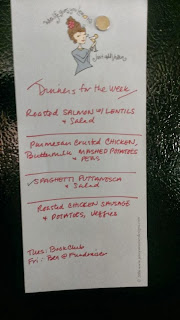 Dinners for the week
Roasted SALMON w/ LENTILS
+ Salad
Parmesan Crusted CHICKEN,
Buttermilk MASHED POTATOES
+ PEAS
✓ SPAGHETTI PUTTANESCA
+ Salad
Roasted CHICKEN SAUSAGE
+ POTATOES, Veggies
Tues: Book Club
Fri: Bex @ Fundraiser